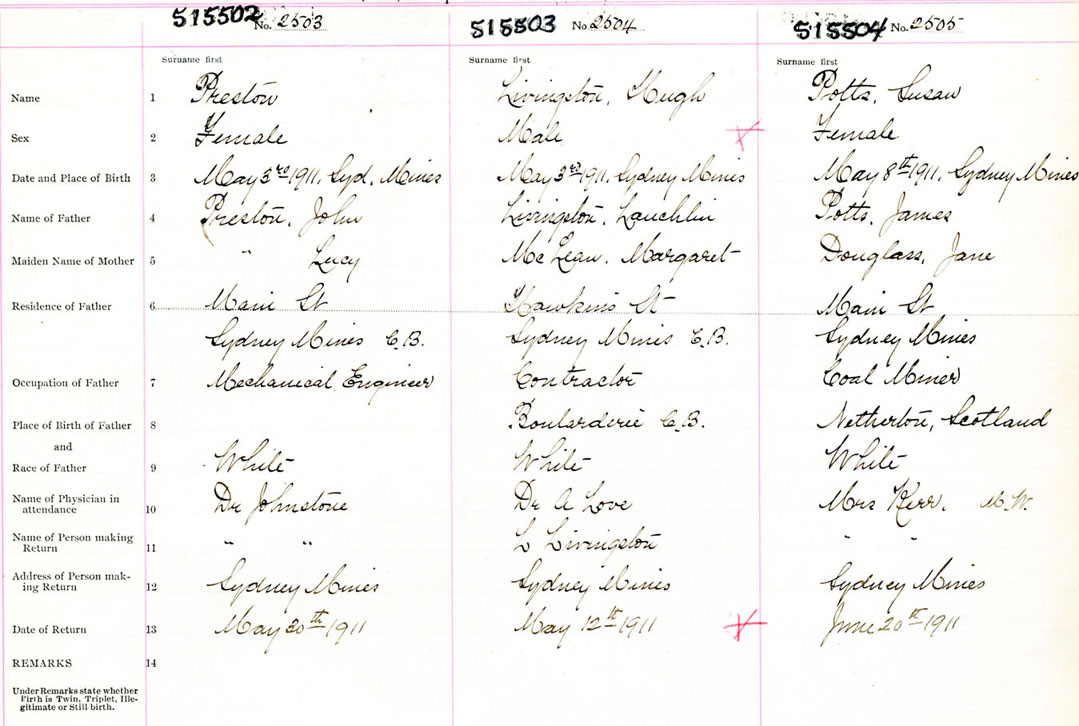 515502 No. 2503 515503 No 2504 515504 No. 2505
Surname first Surname first Surname first
Name 1 Preston Livingston, Hugh Potts, Susan
Sex 2 Female Male Female
Date and Place of Birth 3 May 3rd 1911, Syd. Mines May 3rd 1911, Sydney Mines May 8th 1911, Sydney Mines
Name of Father 4 Preston, John Livingston, Lauchlin Potts, James
Maiden Name of Mother 5 " Lucy McLean, Margaret Douglass, Jane
Residence of Father 6 Main St Hawkins St Main St
Sydney Mines C.B. Sydney Mines C.B. Sydney Mines
Occupation of Father 7 Mechanical Engineer Contractor Coal Miner
Place of Birth of Father 8 Boularderie C.B. Netherton, Scotland
and
Race of Father 9 White White White
Name of Physician in
attendance 10 Dr Johnstone Dr A Love Mrs Kerr, M.W.
Name of Person making
Return 11 " " L Livingston " "
Address of Person mak-
ing Return 12 Sydney Mines Sydney Mines Sydney Mines
Date of Return 13 May 20th 1911 May 12th 1911 June 20th 1911
REMARKS 14
Under Remarks state whether
Birth is Twin, Triplet, Ille-
gitimate or Still birth.